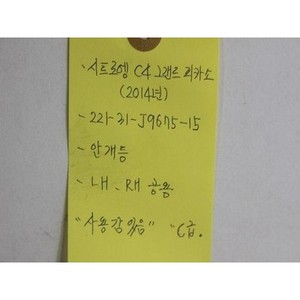 - 시트로엥 C4 그랜드 피카소
(2014년)
- 221-31-J9675-15
- 안개등
- LH、RH 공용
"사용감있음" "C급.